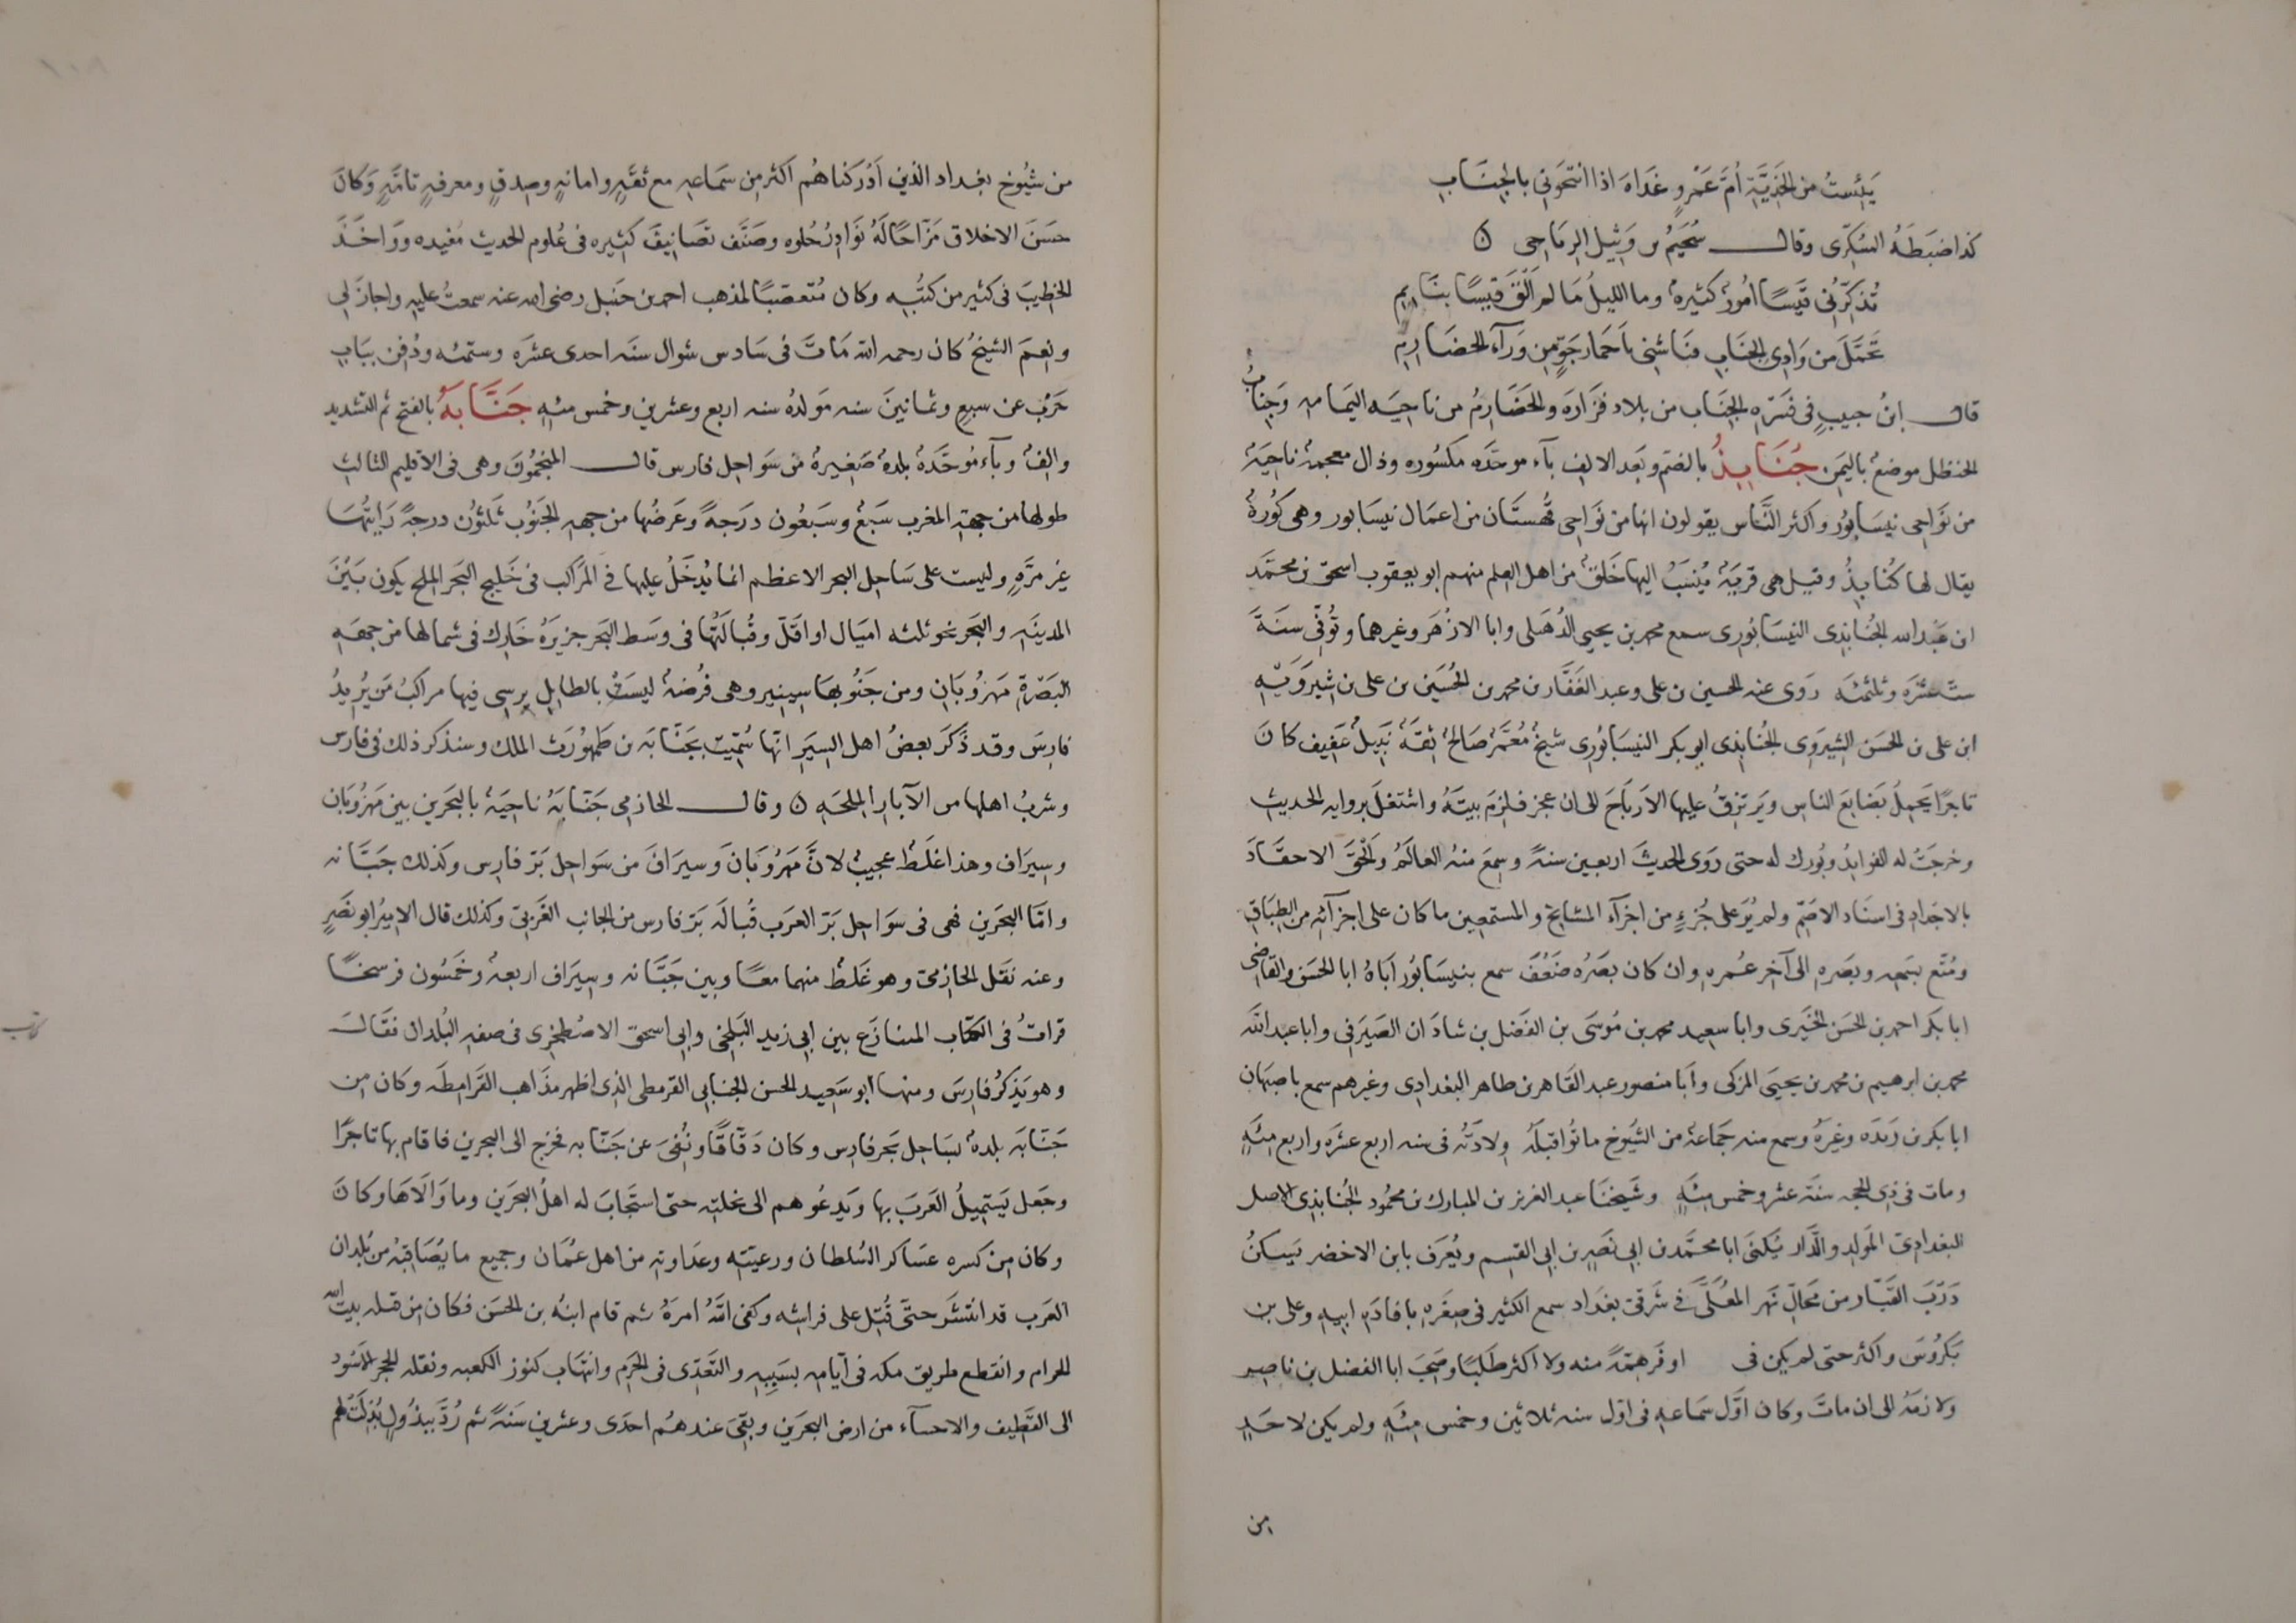 يَئِستُ من الجَذِيَّةِ أُمَّ عَمْرٍو غَدَاةَ اذا انتحَوني بالجِنَابِ
كذا ضبَطَهُ السُكرى وقال سُحَيْمُ بن وَثِيل الرِيَاحِى ن
تُذَكِّرُنى قَيسًا امُورٌ كثيرةٌ وما الليلُ مَا لم اَلقَ قَيسًا بنَايم
تَحَمَّلَ من وَادِى الجِنَابِ فنَاشَنِى بأَحمَارِ جَوٍّ مِن وَرآءِ الخضَارِمِ
قال ابنُ حبيبٍ فى فسَّره الجِنَاب من بلاد فزَارَة والخَضَارِمُ من ناحيَه اليمَامه وَجِنَابُ
الحنظل موضعٌ باليَمَن جُنَابِذُ بالضم وبَعد الالفِ بآء موحَّده مكسُوره وذال معجمةٌ ناحيَةٌ
من نَوَاحِى نيسَابُور واكثر النَّاس يقولون انها من نوَاحى قُهستَان من اعمَال نيسَابور وهى كُورَةٌ
يقال لها كُنَابِذُ وقيل هى قريَةٌ يُنسَبُ اليها خَلقٌ من اهل العِلم منهم ابو يعقوب اسحق بن محمَّد
ابن عَبد الله الجُنابذى النيسَابُورى سمع محمد بن يحيى الذُهَلى وابا الازهَر وغيرهما وتُوفّى سنَةَ
ستَّ عشَرَه وثلثمئَه روَى عنه الحسين بن على وعبد الغَفَّار بن محمد بن الحُسَين بن على بن شِيرَوَيْهِ
ابن على بن الحسَن الشيرَوِى الجُنَابِذى ابو بكر النيسَابُورى شيخٌ مُعَمَّرٌ صَالحٌ ثقَةٌ نَبيلٌ عَفِيف كانَ
تاجرًا يَحمِلُ بَضَايعَ الناس ويَرتزقُ عليها الاَربَاحَ الى ان عجز فلزمَ بيتَهُ واشتغلَ بروايه الحديث
وخرجَتْ له الفوايدُ وبُورك له حتى رَوَى الحديثَ اربعين سنةً وسمعَ منهُ العالَمُ والحَقَ الاحفَادَ
بالاجدَادِ فى اسنَاد الاصَمّ ولم يُرَ على جُزءٍ من اجزآء المشايخ والمستمعين ما كان على اجزآئه من الطِبَاقِ
ومُتّع بسَمعِه وبصَرِه الى آخر عُمره وان كان بصَرُه ضَعُفَ سمع بنيسَابُور اَبَاهُ ابا الحسَن والقاضى
ابا بكَر احمد بن الحسَن الحِيَرى وابا سعِيد محمد بن مُوسَى بن الفَضل بن شاذَان الصَيرَفى وابا عبد الله
محمد بن ابرهيم بن محمد بن يحيَى المزكى وأبا منصور عبد القَاهر بن طاهر البغدادى وغيرهم سمع باصبَهان
ابا بكر بن رَيذَه وغيرَهُ وسمع منه جَمَاعةٌ من الشيُوخ ماتُوا قبلَهُ وِلادَتُه فى سنه اربع عشرَه واربع مئَةٍ
ومات فى ذى الحجه سنَة عشر وخمس مئَةٍ وشَيخنَا عبد العزيز بن المبارك بن محمُود الجُنابذى الاصل
البغدَادِىّ المَولِدِ والدَّارِ يُكنَى ابا محمَّد بن ابى نَصر بن ابى القسِم ويُعرَف بابن الاخضر يَسكنُ
دَرْبَ القَيّار من محَالّ نهر المعَلَّى فى شَرقىّ بغدَاد سمع الكثير فى صِغَرِه بافادَةِ ابيهِ وعلى بن
بكرُوسَ واكثر حتى لم يكن فى اوفَر هِمَّةً منه ولا اكثر طَلَبًا وصَحِبَ ابا الفضل بن ناصِر
ولازمَهُ الى ان ماتَ وكان اوَّل سَمَاعه فى اوّل سنه ثلاثين وخمس مئَةٍ ولم يكن لاحَدٍ
من
من شيُوخ بغداد الذين اَدركناهُم اكثر من سَمَاعهِ مع ثقَةٍ وامانةٍ وصِدقٍ ومعرفةٍ تامَّةٍ وَكانَ
حسَنَ الاخلاق مَزَّاحًا لَهُ نَوَادِرُ حُلوه وصنَّف تصَانيفَ كثيره فى عُلوم الحديث مُفيده وَوَاخَذَ
الخطِيبَ فى كثير من كتُبِه وكان مُتعصّبًا لمذهب احمد بن حنبل رضى الله عنه سمعتُ عليهِ واجازَ لى
ونِعمَ الشيخُ كان رحمه الله مَاتَ فى سَادس شوال سنَه احدى عشَرَه وستمئه ودُفن ببَابِ
حَرْبٍ عن سبعٍ وثمانينَ سنه مَولدُهُ سنه اربع وعشرين وخمس مئهٍ جَنَّابَهُ بالفتح ثم التشديد
والفٌ وبآء مُوحَّدَةٌ بلدةٌ صَغيرةٌ من سَواحِل فارس قال المنجمُونَ وهى فى الاقليم الثالث
طولها من جهة المغرب سَبْعٌ وسَبعُون درَجةً وعَرضُها من جهه الجَنُوب ثلثُون درجةً رَايتُهَا
غير مرَّهٍ وليست على سَاحِل البحر الاعظم انما يُدخَلُ عليها فى المراكب فى خَليج البَحر الملح يكون بَيْنَ
المدينَه والبَحر نحو ثلثه اميَال او اقلّ وقُبَالَتُها فى وسَط البَحر جزيرَهُ خَارك فى شمالها من جهَه
البَصْرةِ مَهرُوبَان ومن جَنُوبهَا سِينِيز وهى فُرضَةٌ ليسَتْ بالطايل يرسِى فيها مراكبُ مَن يُريدُ
فارِسَ وقد ذَكَرَ بعضُ اهل السِيَر انّها سُمّيَت بجَنّابَه بن طهمُورَث الملك وسنذكر ذلك فى فارس
وشربُ اهلها من الآبار الملحَه ن وقال الحازمى جَنّابَهُ ناحيَةٌ بالبحَرين بين مَهرُوبَان
وسِيرَاف وهذا غلَطٌ عجيبٌ لانَّ مَهرُوبَانَ وَسيرَافَ من سَواحِل بَرّ فارِس وكذلك جَنَّابه
وامّا البحَرين فهى فى سوَاحِل بَرّ العرَب قُبالَه بَرّ فارس من الجانب الغَربىّ وكذلك قال الامِيرُ ابو نصَرٍ
وعنه نقَل الحازمىّ وهو غَلَطٌ منهما معًا وبين جَنَّابه وسِيرَاف اربعةٌ وخَمسُون فرسخًا
قراتُ فى الكتَاب المتنازَع بين ابى زيد البَلخى وابى اسحق الاصطخرى فى صفه البُلدان فقَالَ
وهو يَذكرُ فارِسَ ومنها ابو سَعِيد الحسن الجنابى القرمطى الذى اظهر مذَاهب القَرامِطَه وكان من
جَنّابَه بلدةٌ بسَاحِل بَحر فارِس وكان دَقّاقًا ونُفىَ عن جَنّابه فخرج الى البحرين فاقام بها تاجرًا
وجَعل يَستَمِيلُ العَرَبَ بها ويَدعُوهم الى نحلته حتى استجَابَ له اهلُ البحرَين وما وَالَاهَا وكانَ
وكان مِن كسره عسَاكر السُلطان ورعيته وعدَاوته من اهل عُمَان وجميع ما يُصَاقبهُ من بُلدان
العرَب قد انتشَر حتَّى قُتِل على فراشه وكفى اللهُ امرَهُ ثم قام ابنُه بن الحسَن فكان من قتله بيت الله
الحرام وانقطع طريق مكه فى ايّامه بسَببهِ والتعَدِّى فى الحَرَم وانتهَاب كنوز الكعبه ونقله الحجر الاَسْود
الى القَطِيف والاحسآء من ارض البحرَين وبقى عندهُم احدَى وعشرين سَنَةً ثم رُدَّ ببذُولٍ بُذِلَتْ لهم